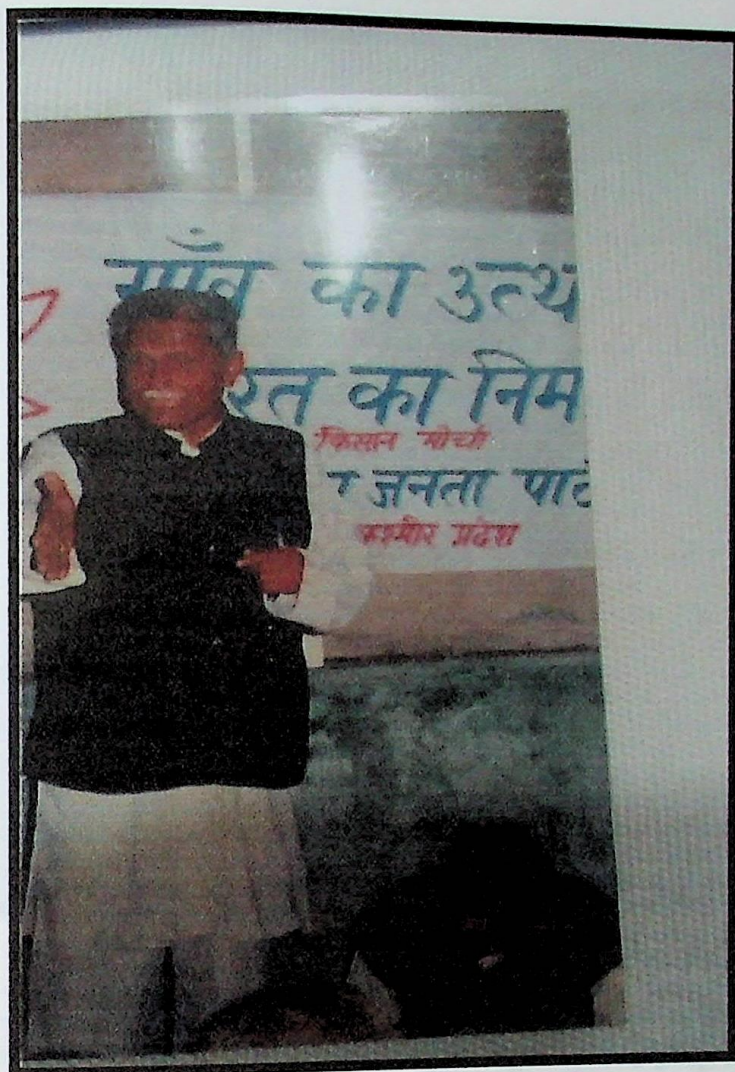 गाँव का उत्थ
रत का निम
किसान मोर्चा
जनता पाट
कश्मीर प्रदेश